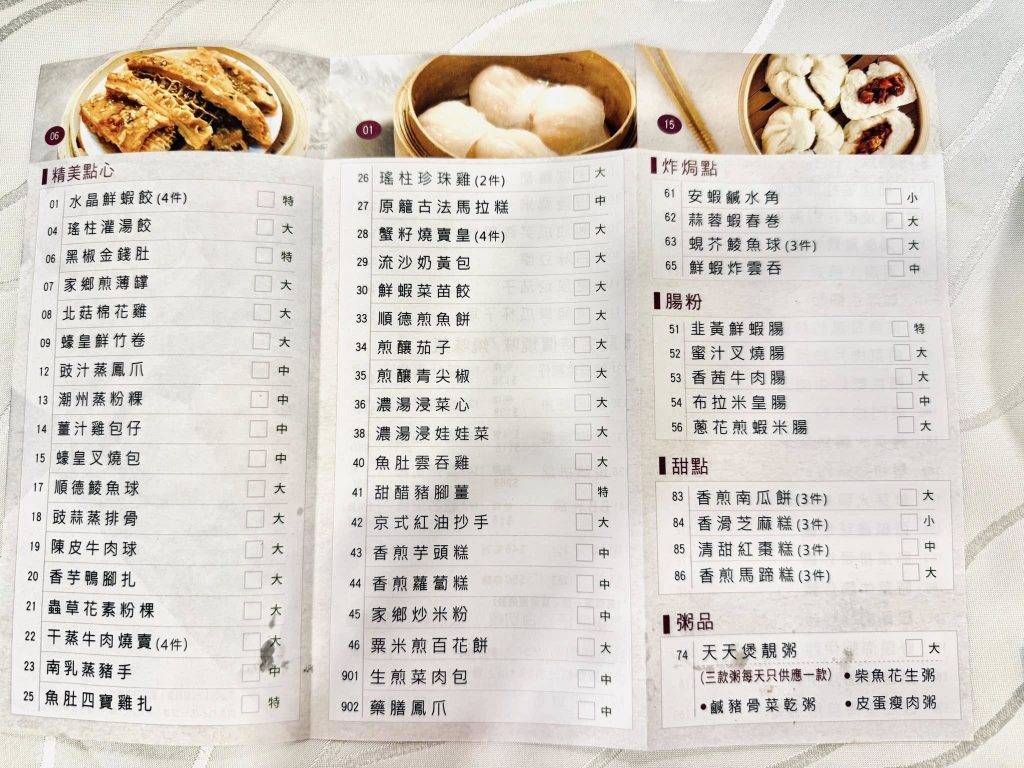 06
精美點心
01 水晶鮮蝦餃(4件) 特
04 瑤柱灌湯餃 大
06 黑椒金錢肚 特
07 家鄉煎薄罉 大
08 北菇棉花雞 大
09 蠔皇鮮竹卷 大
12 豉汁蒸鳳爪 中
13 潮州蒸粉粿 中
14 薑汁雞包仔 中
15 蠔皇叉燒包 中
17 順德鯪魚球 大
18 豉蒜蒸排骨 大
19 陳皮牛肉球 大
20 香芋鴨腳扎 大
21 蟲草花素粉粿 大
22 干蒸牛肉燒賣(4件) 大
23 南乳蒸豬手 中
25 魚肚四寶雞扎 特
01
26 瑤柱珍珠雞(2件) 大
27 原籠古法馬拉糕 中
28 蟹籽燒賣皇(4件) 大
29 流沙奶黃包 大
30 鮮蝦菜苗餃 大
33 順德煎魚餅 大
34 煎釀茄子 大
35 煎釀青尖椒 大
36 濃湯浸菜心 大
38 濃湯浸娃娃菜 大
40 魚肚雲吞雞 大
41 甜醋豬腳薑 特
42 京式紅油抄手 大
43 香煎芋頭糕 中
44 香煎蘿蔔糕 中
45 家鄉炒米粉 中
46 粟米煎百花餅 大
901 生煎菜肉包 中
902 藥膳鳳爪 中
15
炸焗點
61 安蝦鹹水角 小
62 蒜蓉蝦春卷 大
63 蜆芥鯪魚球(3件) 大
65 鮮蝦炸雲吞 中
腸粉
51 韭黃鮮蝦腸 特
52 蜜汁叉燒腸 大
53 香茜牛肉腸 大
54 布拉米皇腸 中
56 蔥花煎蝦米腸 大
甜點
83 香煎南瓜餅(3件) 大
84 香滑芝麻糕(3件) 小
85 清甜紅棗糕(3件) 中
86 香煎馬蹄糕(3件) 大
粥品
74 天天煲靚粥 大
(三款粥每天只供應一款) •柴魚花生粥
•鹹豬骨菜乾粥 •皮蛋瘦肉粥